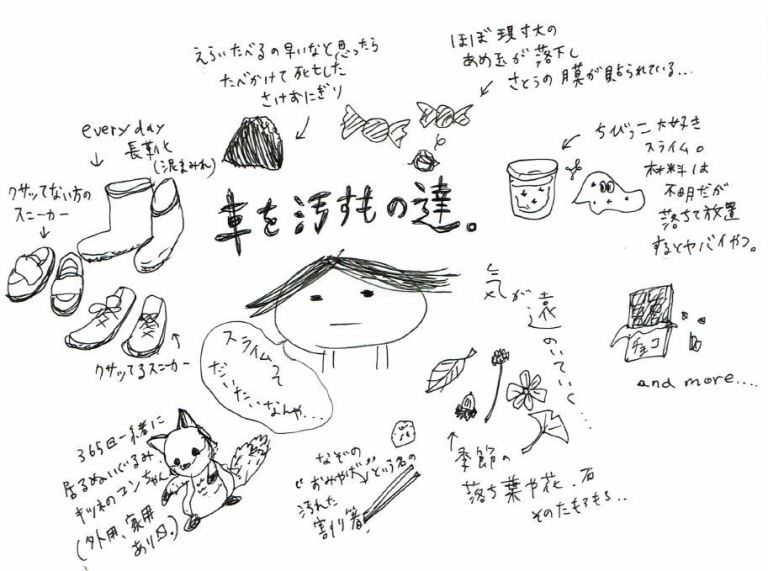 えらいたべるの早いなと思ったら
たべかけて死亡した
さけおにぎり
ほぼ現寸大の
あめ玉が落下し
さとうの膜が貼られている…
every day
長靴
(泥まみれ)
クサッてない方の
スニーカー
ちびっこ大好き
スライム。
材料は
不明だが
落ちて放置
するとヤバイやつ。
車を汚すもの達。
気が遠のいていく…
スライムって
だいたいなんや…
クサッてるスニーカー
チョコ
and more....
365日一緒に
居るぬいぐるみ
キツネのコンちゃん
(外用、家用
あり〼.)
なぞの
"おみやげ"という名の
汚れた
割り箸!
季節の
落ち葉や花、石
そのたもろもろ..